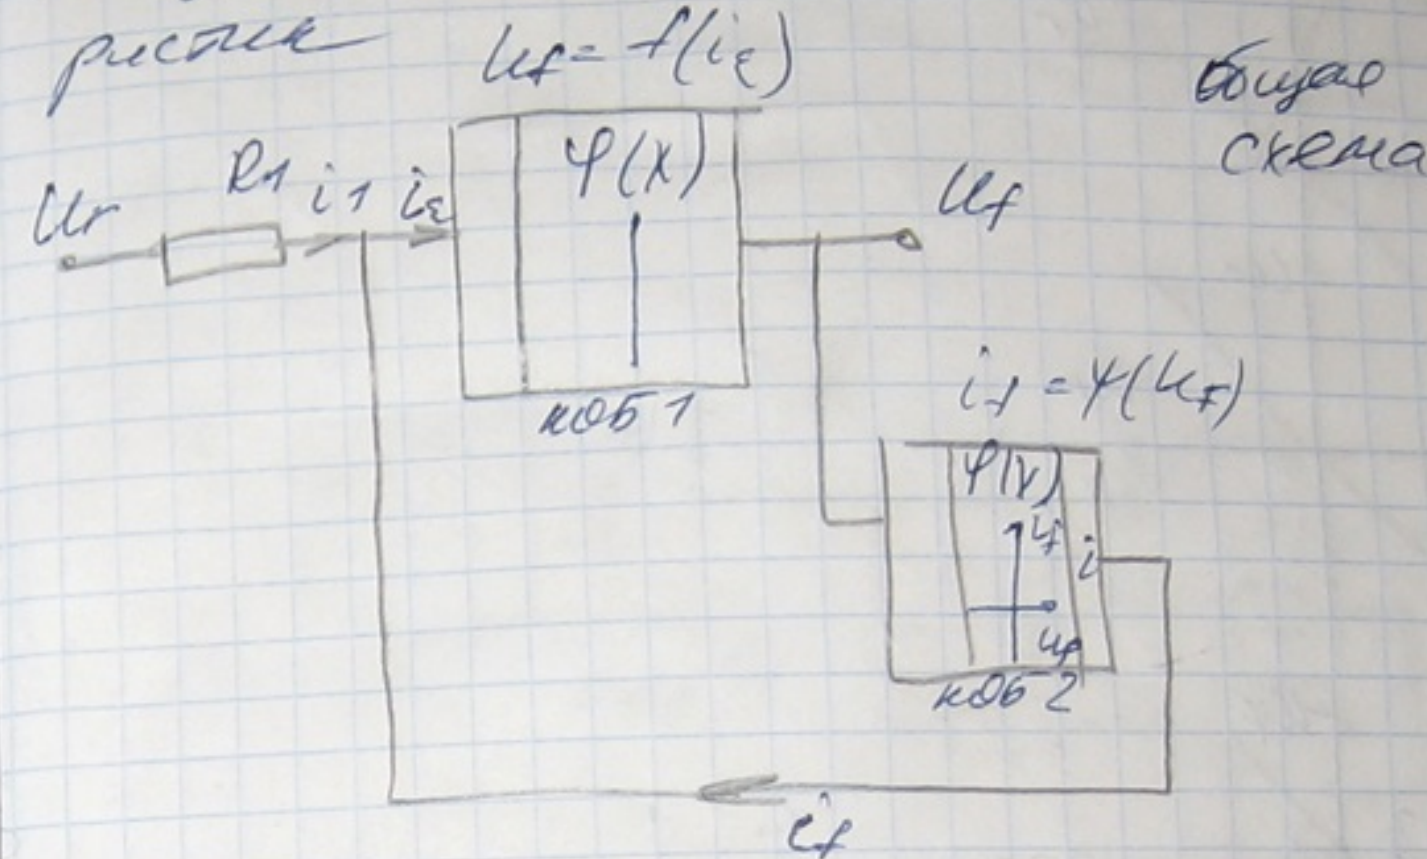 ристик
Uf = f(iε)
общая
схема
Ur
R1
i1
iε
φ(x)
Uf
коб 1
if = ψ(Uf)
φ(x)
if
i
Uf
коб 2
if